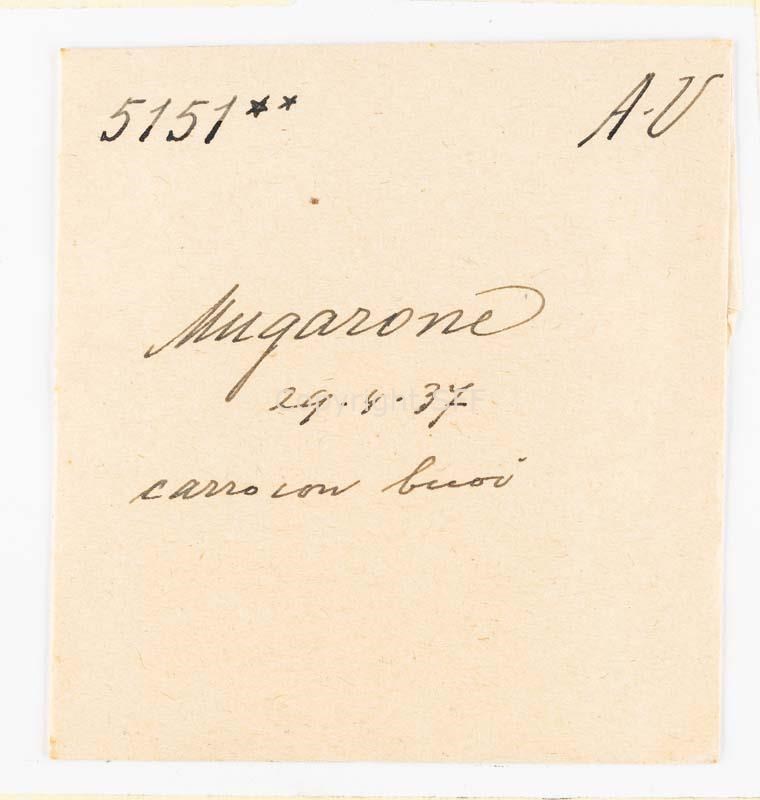 5151** A-V
Mugarone
29.4.37
carro con buoi